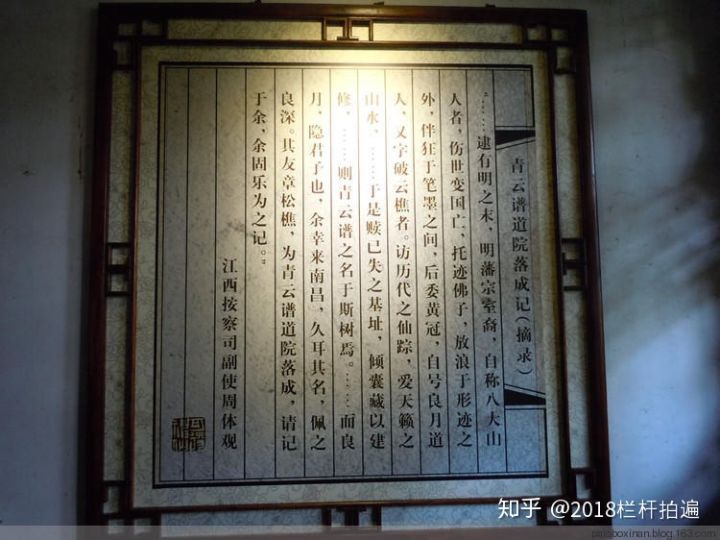 青云谱道院落成记（摘录）
“……逮有明之末，明藩宗室裔，自称八大山
人者，伤世变国亡，托迹佛子，放浪于形迹之
外，佯狂于笔墨之间，后委黄冠，自号良月道
人，又字破云樵者。访历代之仙踪，爱天籁之
山水，……于是赎已失之基址，倾囊藏以建
修，……则青云谱之名于斯树焉。……而良
月，隐君子也，余幸来南昌，久耳其名，佩之
良深。其友章松樵，为青云谱道院落成，请记
于余，余固乐为之记。”
江西按察司副使周体观
知乎 @2018栏杆拍遍